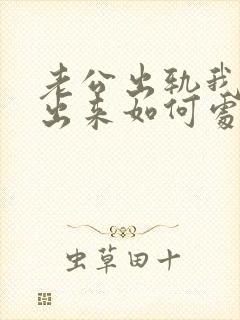 老公出轨我
出来如何处
虫草田十